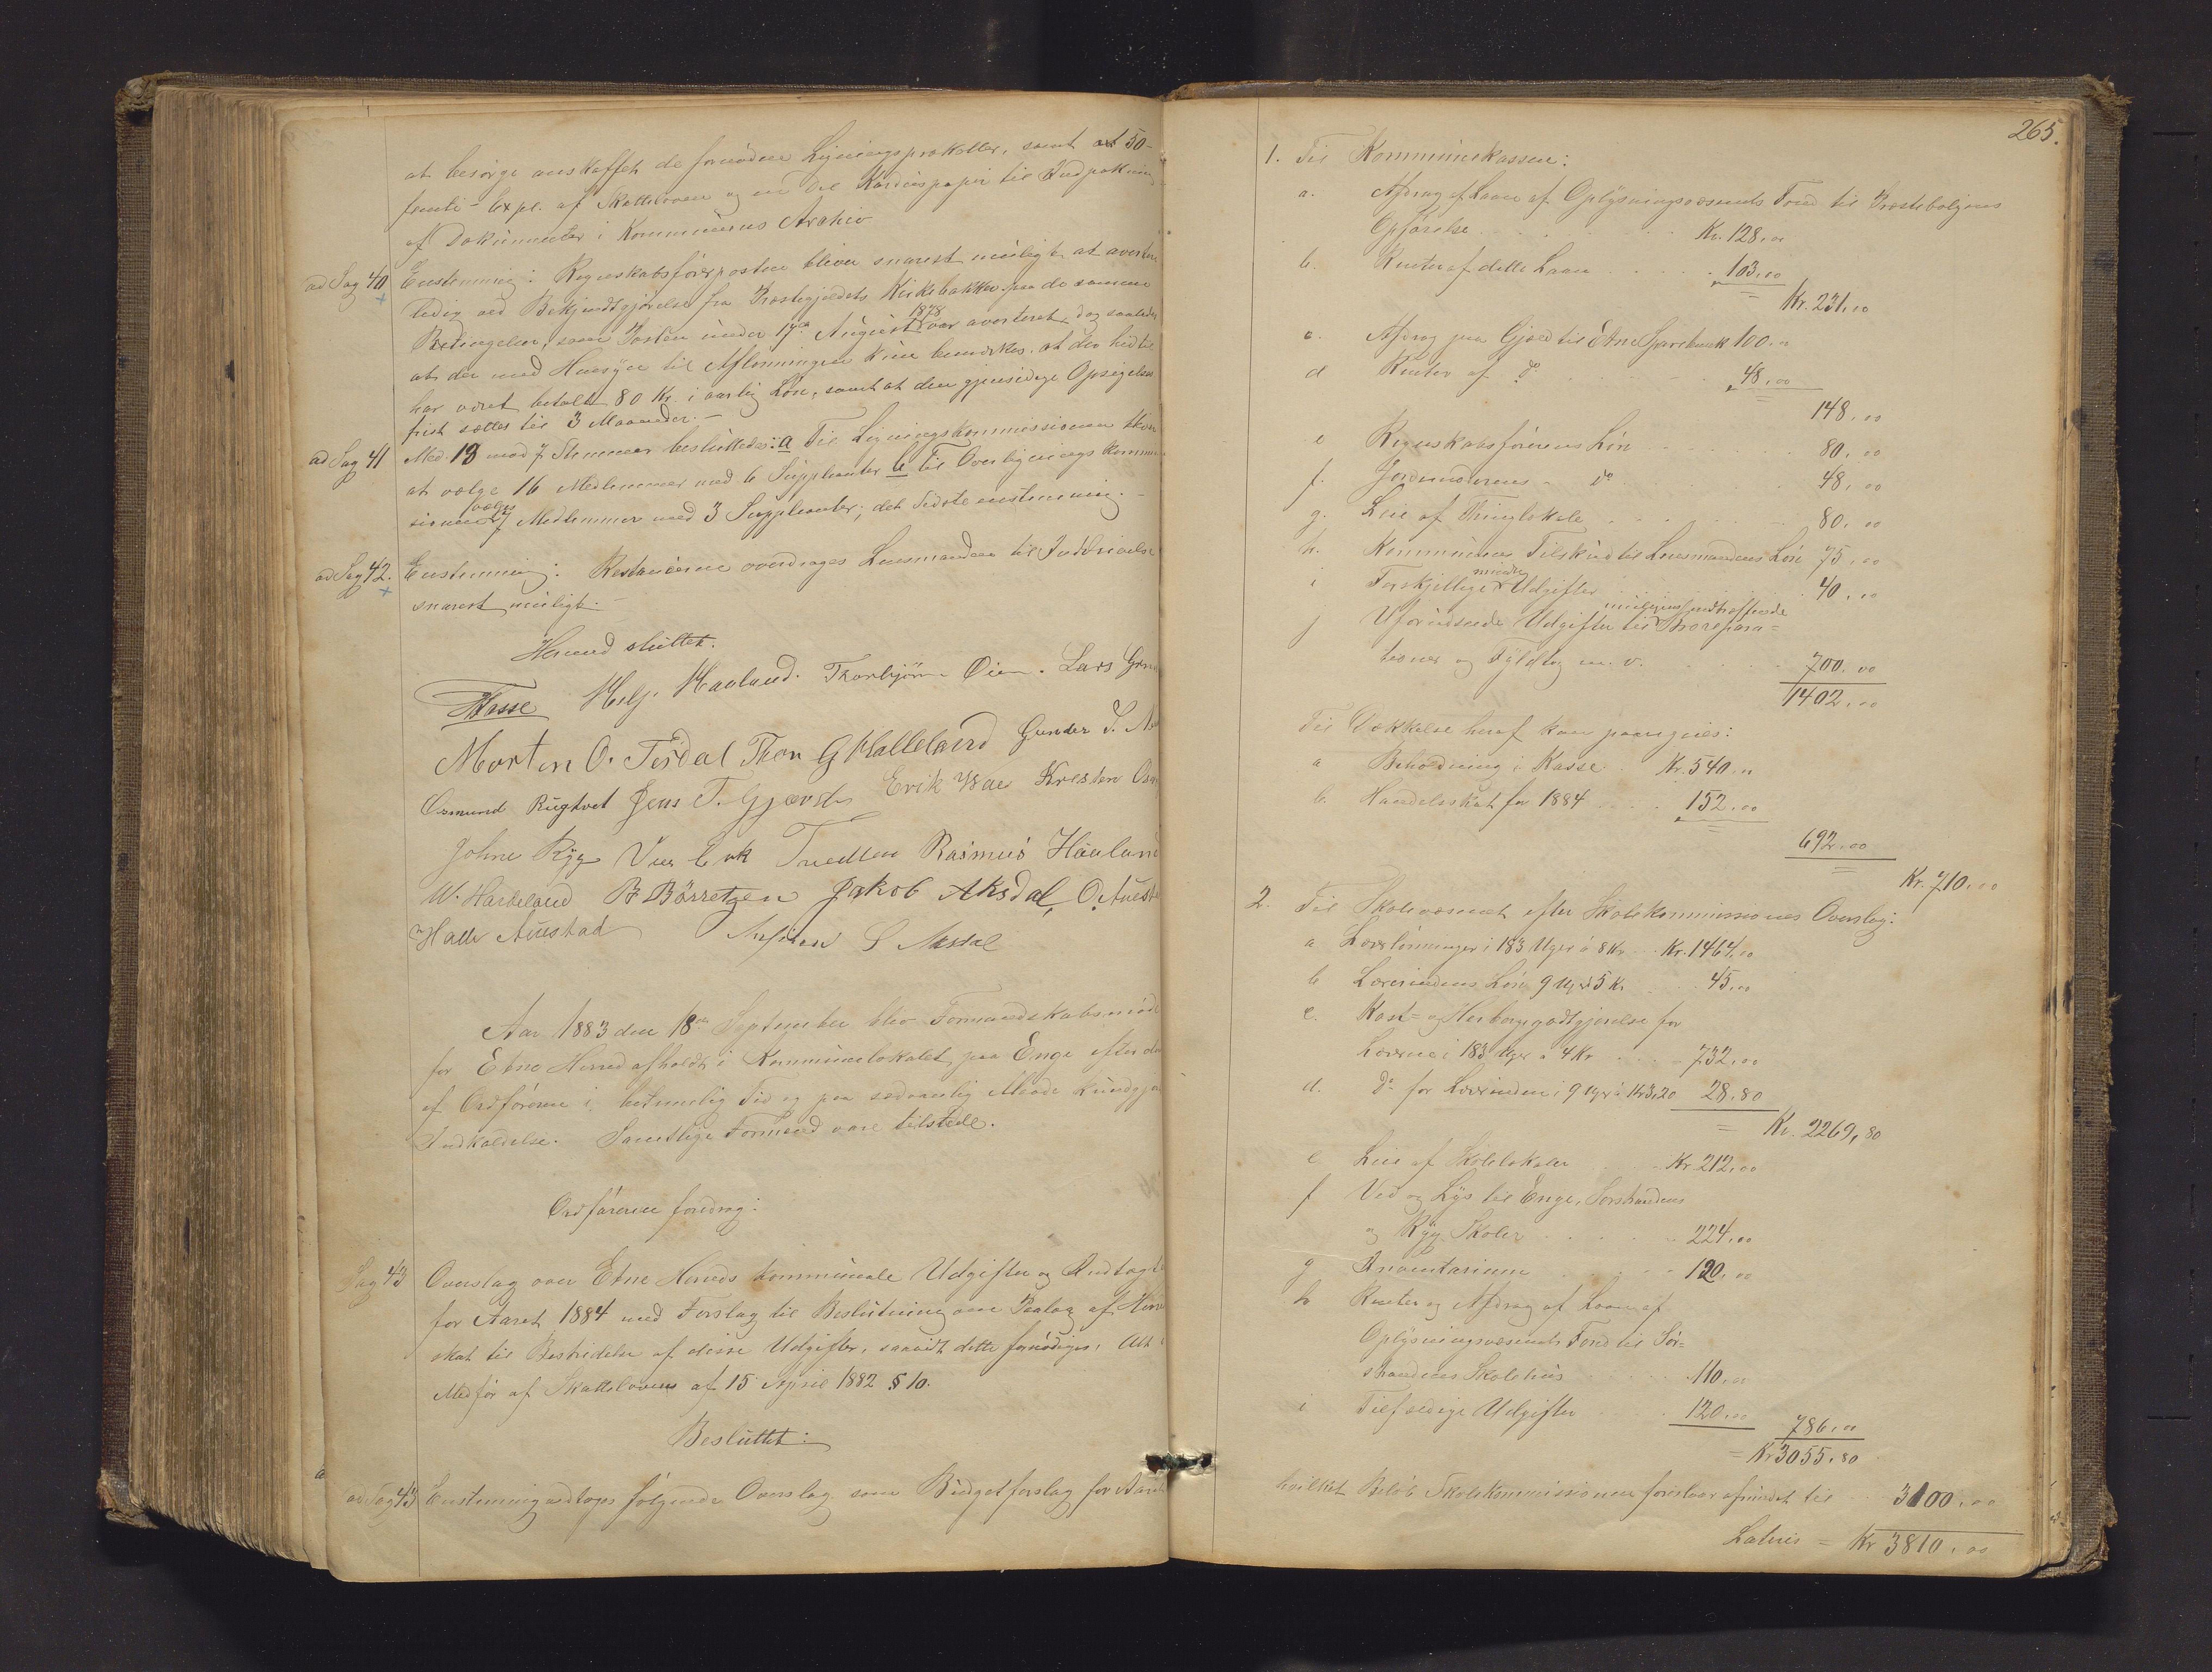 at besørge anskaffet de fornødne Ligningsprotokoller, samt at 50-
femti - Expl. af Skatteloven og en Del Kardüspapir til Indpakning
af Dokumenter i Kommunens Arkiv
ad Sag 40 Enstemmig: Regnskabsførerposten bliver snarest muligt at avertere
ledig ved Bekjendtgjørelse fra Præstegjældets Kirkebakker paa de samme
Betingelser, som Posten under 17de August 1878 var averteret, dog saaledes
at der med Hensyn til Aflønningen kun bemærkes, at der hidtil
har været betalt 80 Kr. i aarlig Løn, samt at den gjensidige Opsigelses
frist sættes til 3 Maaneder. -
ad Sag 41 Med 13 mod 7 Stemmer besluttedes: a Til Ligningskommissionen bliver
at vælge 16 Medlemmer med 6 Suppleanter b Til Overlignings Kommis
sionen vælges 7 Medlemmer med 3 Suppleanter; det sidste enstemmig. -
ad Sag 42. Enstemmig: Restancerne overdrages Lensmanden til Inddrivelse
snarest muligt. -
Hermed sluttet.
Hasse Helje Havland. Thorbjørn Øien. Lars
Morten O. Tesdal Thor G Halleland Gunder
Osmund Rugtvet Jens T. Gjærde Erik Vae Kresten
Johne Ryg Tuedten Rasmus Haaland
W. Hardeland B Børretzen Jakob Aksdal, O. Austa
Halle Austad S Næsdal
Aar 1883 den 18de September blev Formandskabsmøde
for Etne Herred afholdt i Kommunelokalet paa Enge efter den
af Ordføreren i betimelig Tid og paa sædvanlig Maade kundgjorte
Indkaldelse. Samtlige Formænd vare tilstede.
Ordføreren foredrog:
Sag 43 Overslag over Etne Herreds kommunale Udgifter og Indtægter
for Aaret 1884 med Forslag til Beslutning om Paalæg af Herreds
skat til Bestridelse af disse Udgifter, saavidt dette fornødiges, Alt i
Medfør af Skatteloven af 15 April 1882 § 10.
Besluttet:
ad Sag 43 Enstemmig vedtoges følgende Overslag som Budgetforslag for Aaret
265.
1. Til Kommunekassen:
a. Afdrag af Laan af Oplysningsvæsenets Fond til Præsteboligens
Opførelse Kr. 128,00
b. Renter af dette Laan 103,00
= Kr. 231,00
c. Afdrag paa Gjæld til Etne Sparebank 100,00
d Renter af do 48,00
=
148,00
e Regnskabsførerens Løn 80,00
f. Jordemoderens do 48,00
g. Leie af Thinglokale 80,00
h. Kommunens Tilskud til Lensmandens Løn 75,00
i Forskjellige mindre Udgifter 40,00
j Uforudseede Udgifter til muligens indtræffende Brorepara=
tioner og Fyldtog m. v. 700,00
1402,00
Til Dækkelse heraf kan paaregnes:
a Beholdning i Kasse Kr. 540,00
b. Handelsskat for 1884 152,00
=
692,00
=
Kr. 710,00
2. Til Skolevæsenet efter Skolekommissionens Overslag:
a Lærerlønninger i 183 Uger à 8 Kr Kr. 1464,00
b Lærerindens Løn 9 Uger à 5 Kr 45,00
c. Kost- og Herbergegodtgjørelse for
Lærerne i 183 Uger à 4 Kr 732,00
d. do for Lærerinden i 9 Uger à Kr 3,20 28,80
= Kr. 2269,80
e Leie af Skolelokaler Kr 212,00
f Ved og Lys til Enge, Sørstrandens
og Ryg Skoler 224,00
g Inventarium 120,00
h Renter og Afdrag af Laan af
Oplysningsvæsenets Fond til Sør=
strandens Skolehus 110,00
i Tilfældige Udgifter 120,00
786,00
= Kr 3055,80
hvilket Beløb Skolekommissionen foreslaar afrundet til 3100,00
Latus = Kr 3810,00